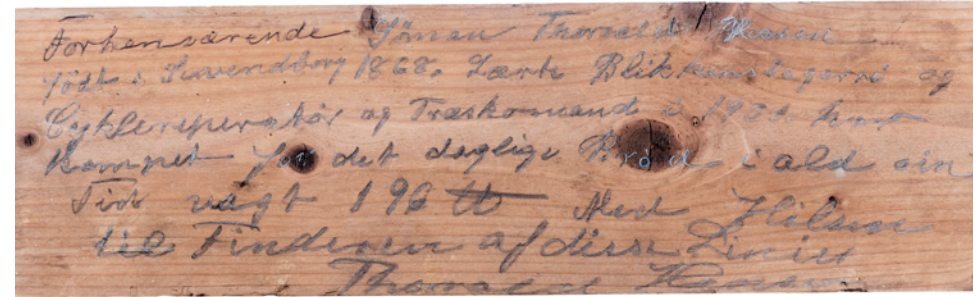 Forhenværende Sömau Thorvald Hansen
födt i Svendborg 1868. Lærte Blikkenslagerri og
Cykklereperatör og Træskomand i 1901. har
Kæmpet for det daglige Bröd i ald sin
Tid vægt 196 ℔ Med Hilsen
til Finderen af disse Linier
Thorvald Hansen